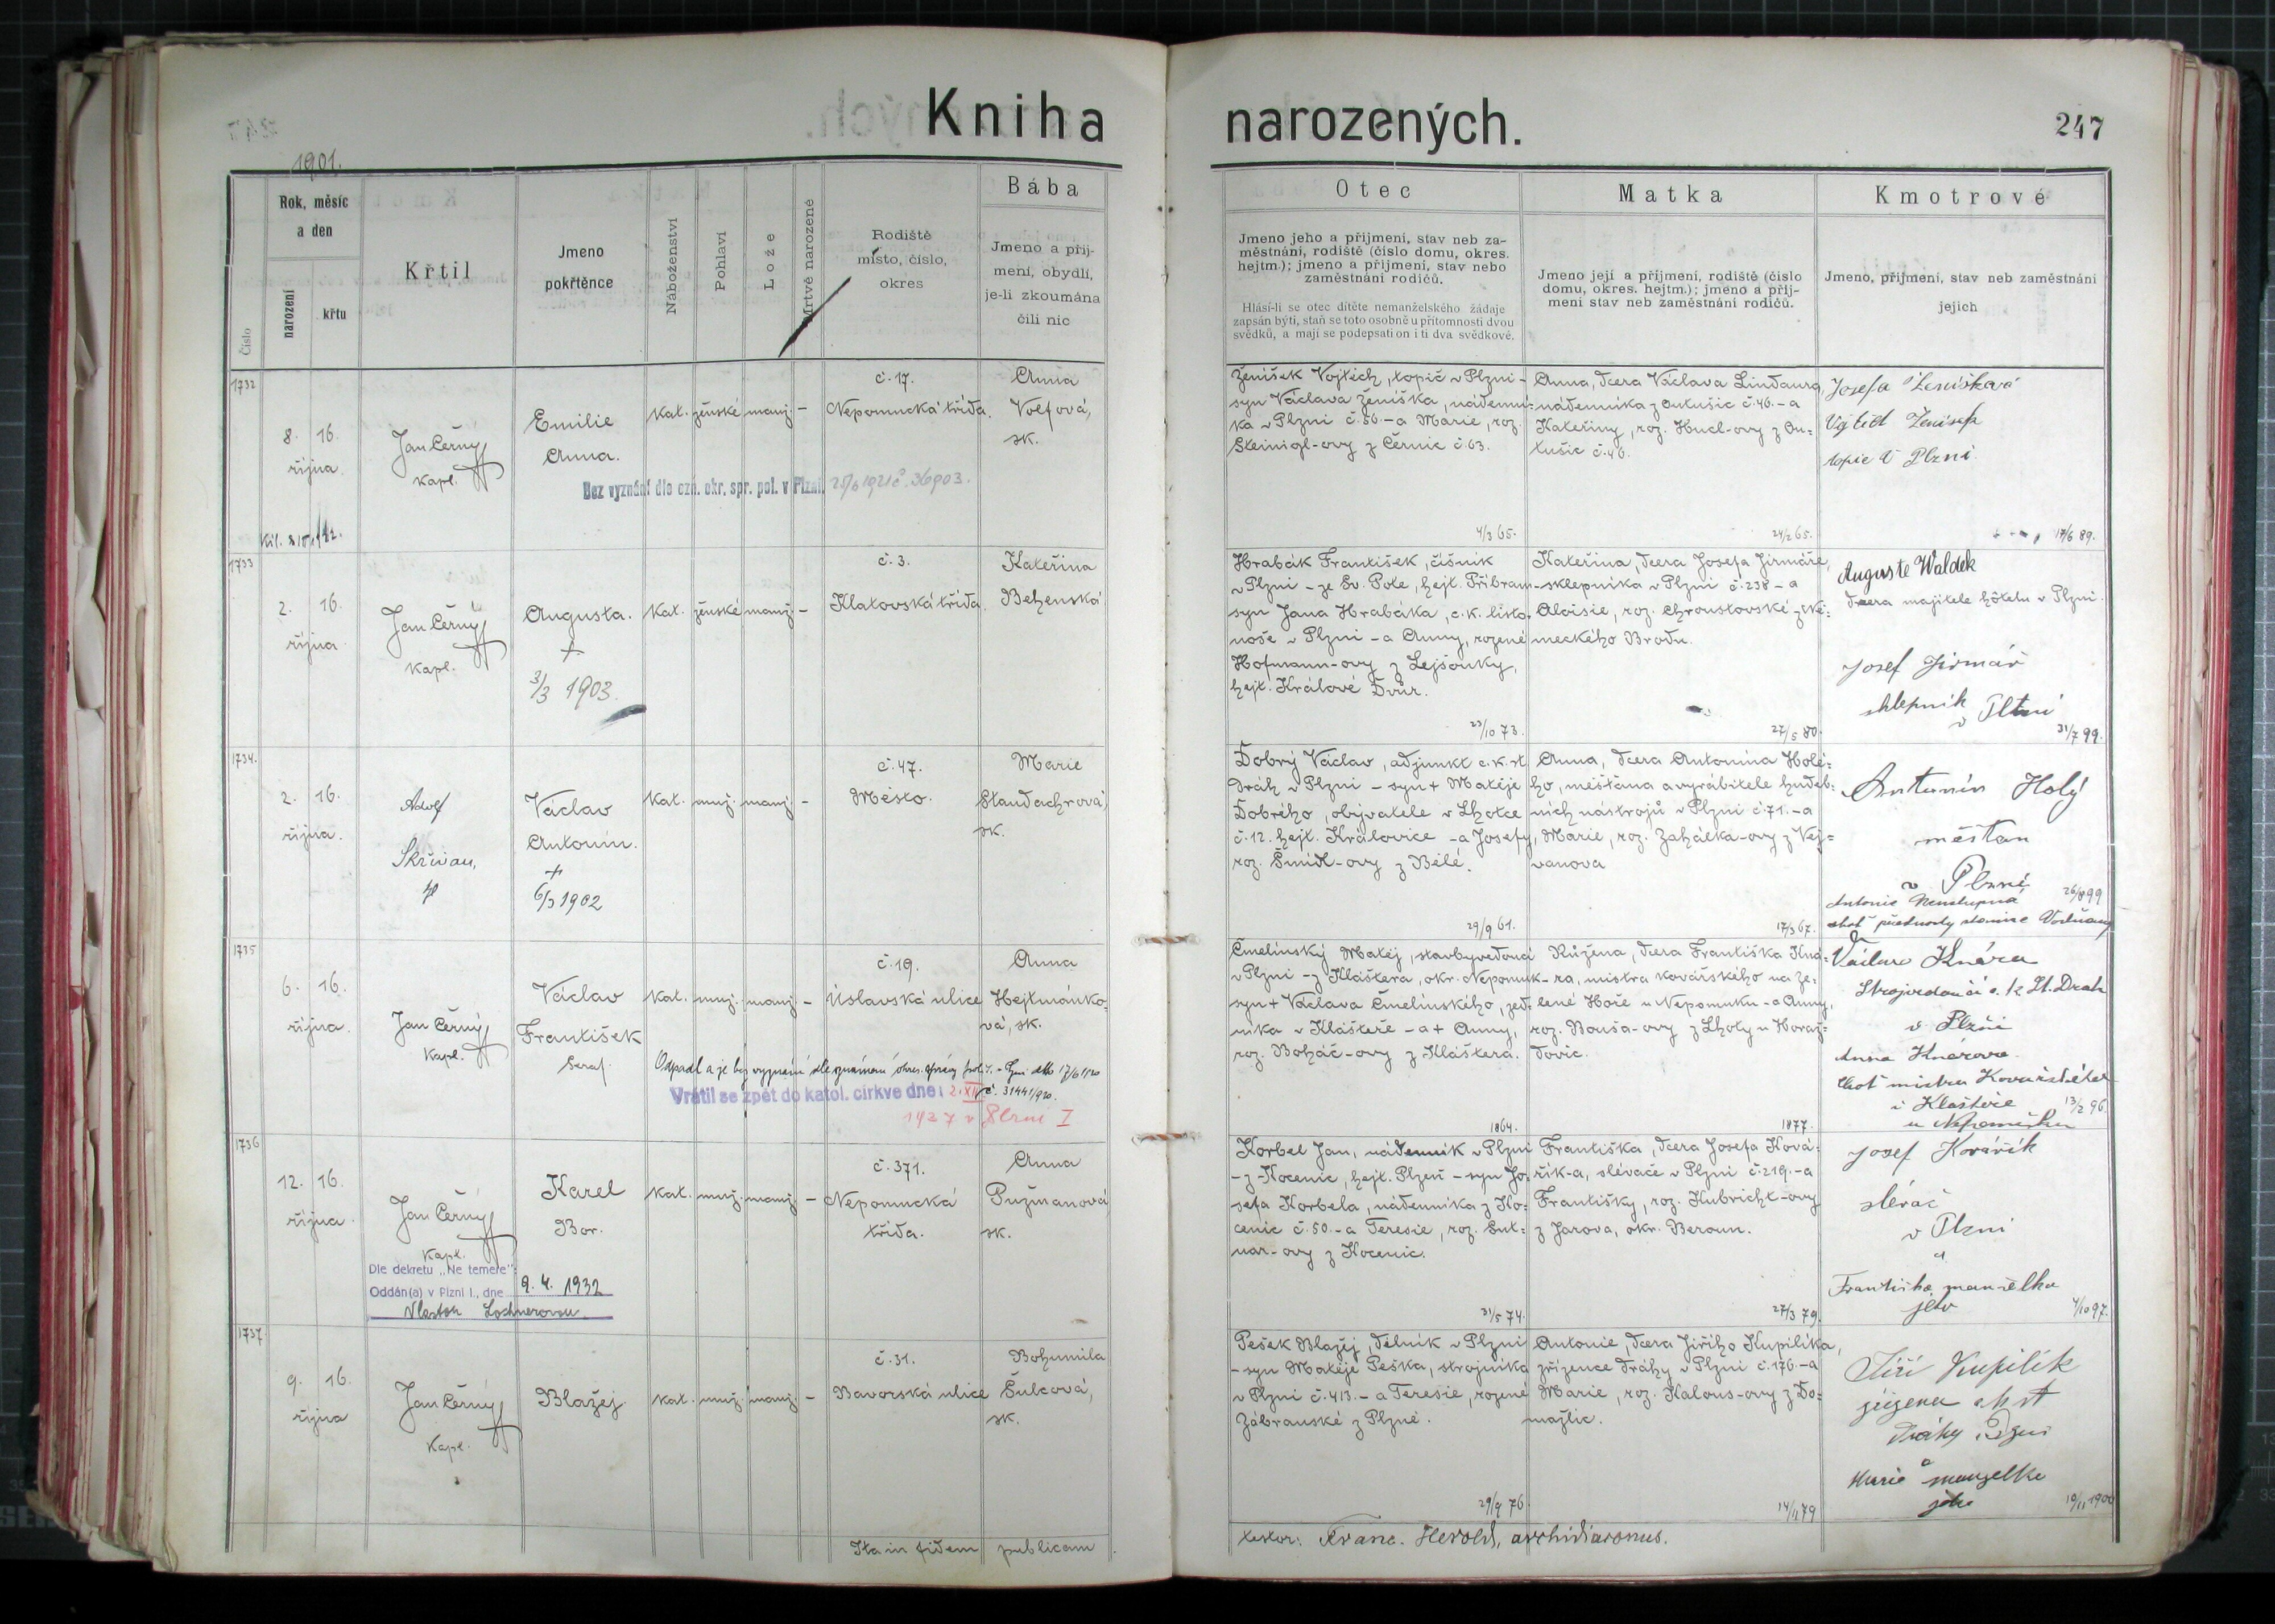 Kniha
narozených.
247
1901.
Číslo
Rok, měsíc
a den
narození
křtu
Křtil
Jmeno
pokřtěnce
Náboženství
Pohlaví
Lože
Mrtvě narozené
Rodiště
místo, číslo,
okres
Bába
Jmeno a příj-
mení, obydlí,
je-li zkoumána
čili nic
Otec
Jmeno jeho a příjmení, stav neb za-
městnání, rodiště (číslo domu, okres.
hejtm.); jmeno a příjmení, stav nebo
zaměstnání rodičů.
Hlásí-li se otec dítěte nemanželského žádaje
zapsán býti, staň se toto osobně u přítomnosti dvou
svědků, a mají se podepsati on i ti dva svědkové.
Matka
Jmeno její a příjmení, rodiště (číslo
domu, okres. hejtm.); jmeno a příj-
mení stav neb zaměstnání rodičů.
Kmotrové
Jmeno, příjmení, stav neb zaměstnání
jejich
1732
8. 16.
října.
Jan Černý
kapl.
Emilie
Anna.
kat. ženské manž. -
č. 17.
Nepomucká třída.
Anna
Volfová,
zk.
Bez vyznání dle ozn. okr. spr. pol. v Plzni. č. 36903.
Ženíšek Vojtěch, topič v Plzni -
syn Václava Ženíška, nádenní-
ka v Plzni č. 56. - a Marie, roz.
Steinigl-ovy z Černic č. 63.
4/3 65.
Anna, dcera Václava Lindaura,
nádenníka z Outušic č. 46. - a
Kateřiny, roz. Hucl-ovy z Ou=
tušic č. 46.
24/2 65.
Josefa Ženíšková
Vojtěch Ženíšek
topič v Plzni
17/6 89.
1733
2. 16.
října
Jan Černý
kapl.
Augusta.
+
3/3 1903.
kat. ženské manž. -
č. 3.
Klatovská třída.
Kateřina
Behenská
Hrabák František, číšník
v Plzni - ze Sv. Pole, hejt. Příbram -
syn Jana Hrabáka, c. k. listo-
noše v Plzni - a Anny, rozené
Hofmann-ovy z Lejšovky,
hejt. Králové Dvůr.
23/10 73.
Kateřina, dcera Josefa Jirmáře,
sklepníka v Plzni č. 238 - a
Aloisie, roz. Chroustovské z Ně-
meckého Brodu.
27/5 80.
Auguste Waldek
dcera majitele hôtelu v Plzni.
Josef Jirmář
sklepník
v Plzni
31/7 99.
1734.
2. 16.
října.
Adolf
Skřivan,
Václav
Antonín.
+
6/3 1902
kat. muž. manž. -
č. 47.
Město.
Marie
Staudachrová,
zk.
Dobrý Václav, adjunkt c. k. st.
drah v Plzni - syn + Matěje
Dobrého, obyvatele v Lhotce
č. 12. hejt. Královice - a Josefy,
roz. Šmídl-ovy z Bělé.
29/9 61.
Anna, dcera Antonína Holé-
ho, měšťana a vyrábitele hudeb-
ních nástrojů v Plzni č. 71. - a
Marie, roz. Zahálka-ovy z Vej=
vanova
17/3 67.
Antonín Holý
měšťan
v Plzni
26/8 99
Antonie
choť přednosty stanice Vodňany
1735
6. 16.
října.
Jan Černý
kapl.
Václav
František
Seraf.
kat. muž. manž. -
č. 19.
Úslavská ulice
Anna
Hejtmánko-
vá, zk.
Odpadl a je bez vyznání dle oznámení okres. správy pol. v Plzni dto 17/6 1920
č. 31441/920.
Vrátil se zpět do katol. církve dne 2. XII
1927 v Plzni I
Čmelínský Matěj, stavbyvedoucí
v Plzni - z Kláštera, okr. Nepomuk -
syn + Václava Čmelínského, zed-
níka v Klášteře - a + Anny,
roz. Boháč-ovy z Kláštera.
1864.
Růžena, dcera Františka Kná-
ra, mistra kovářského na Ze-
lené Hoře u Nepomuku - a Anny,
roz. Bouša-ovy z Lhoty u Horaž-
dovic.
1877.
Václav Knára
Strojvedoucí c. k. St. Drah
v Plzni
Anna Knárova
choť mistra Kovářského
v Klášteře
u Nepomuku
13/2 96.
1736
12. 16.
října.
Jan Černý
kapl.
Karel
Bor.
kat. muž. manž. -
č. 371.
Nepomucká
třída.
Anna
Pužmanová
zk.
Dle dekretu „Ne temere“:
Oddán(a) v Plzni I., dne 9. 4. 1932
Vlastou Lochnerovou
Korbel Jan, nádenník v Plzni
- z Kocenic, hejt. Plzeň - syn Jo-
sefa Korbela, nádenníka z Ko-
cenic č. 50. - a Teresie, roz. Sut-
nar-ovy z Kocenic.
31/5 74.
Františka, dcera Josefa Ková-
řík-a, slévače v Plzni č. 219. - a
Františky, roz. Kubricht-ovy
z Jarova, okr. Beroun.
27/3 79.
Josef Kovářík
slévač
v Plzni
a
Františka manželka
jeho
4/10 97.
1737
9. 16.
října
Jan Černý
kapl.
Blažej
kat. muž. manž. -
č. 31.
Bavorská ulice
Bohumila
Šulcová,
zk.
Pešek Blažej, dělník v Plzni
- syn Matěje Peška, strojníka
v Plzni č. 413. - a Teresie, rozené
Zábranské z Plzně.
29/9 76.
Antonie, dcera Jiřího Kupilíka,
zřízence dráhy v Plzni č. 176. - a
Marie, roz. Kalous-ovy z Do-
mažlic.
14/11 79
Jiří Kupilík
zřízenec c k st
Dráhy Plzni
a
Marie manželka
jeho
10/11 1900
Ita in fidem publicam
testor: Franc. Herold, archidiaconus.